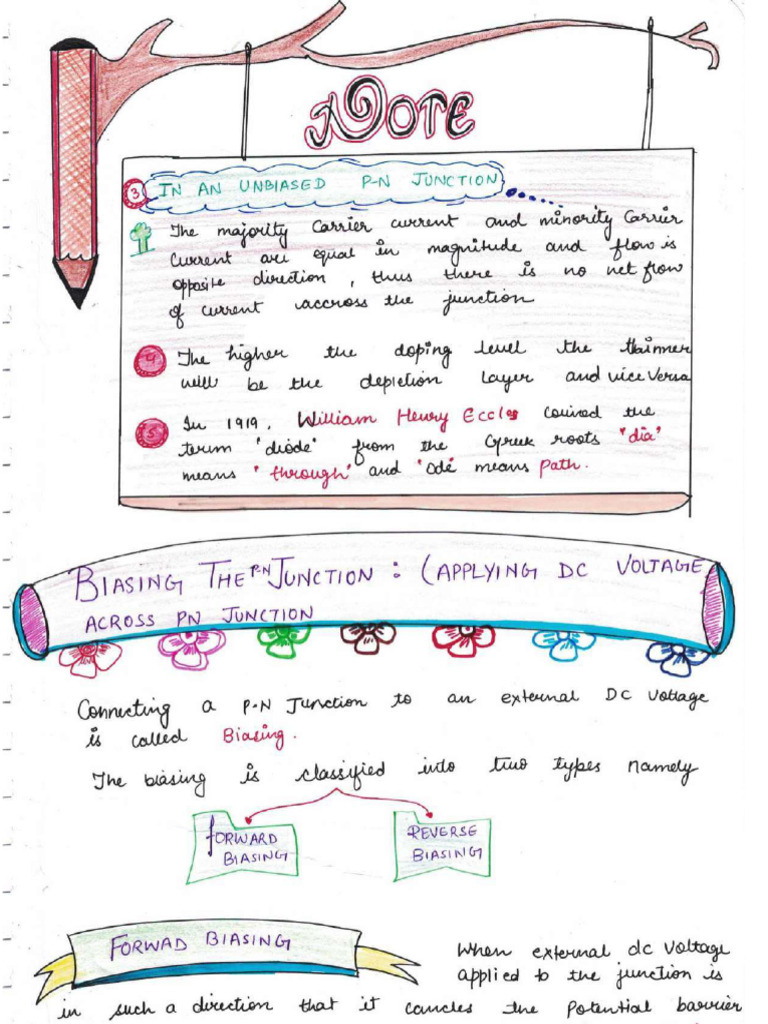 NOTE
3 IN AN UNBIASED P-N JUNCTION
The majority carrier current and minority carrier
current are equal in magnitude and flow is
opposite direction, thus there is no net flow
of current accross the junction
4 The higher the doping level the thinner
will be the depletion layer and vice versa
5 In 1919, William Henry Eccles coined the
term 'diode' from the Greek roots "dia"
means "through" and 'Ode' means Path.
BIASING THE PN JUNCTION : (APPLYING DC VOLTAGE
ACROSS PN JUNCTION
Connecting a P-N Junction to an external DC voltage
is called Biasing.
The biasing is classified into two types namely
FORWARD REVERSE
BIASING BIASING
FORWAD BIASING
When external dc voltage
applied to the junction is
in such a direction that it cancles the potential barrier